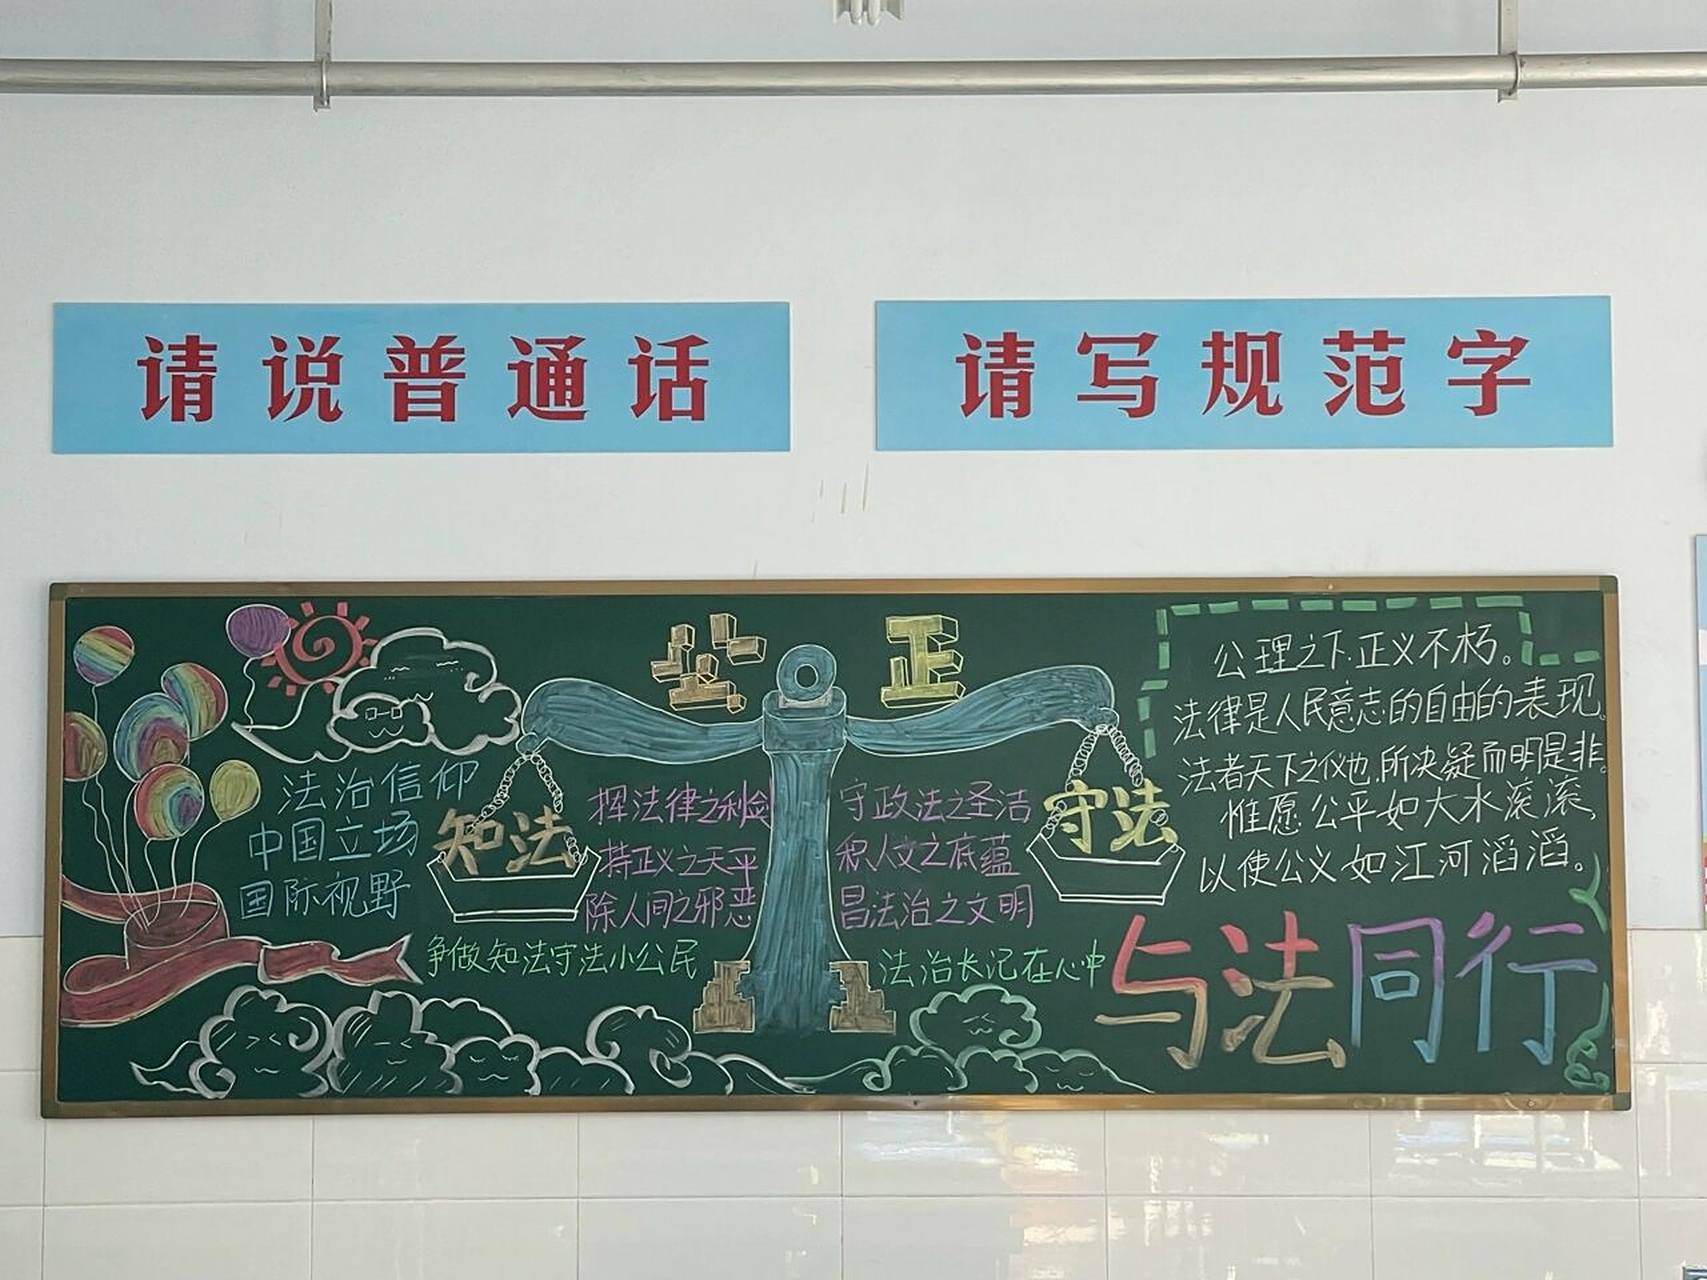 请说普通话
请写规范字
公正
法治信仰
中国立场
国际视野
知法
挥法律之利剑
持正义之天平
除人间之邪恶
守政法之圣洁
积人文之底蕴
昌法治之文明
守法
争做知法守法小公民
法治长记在心中
公理之下.正义不朽。
法律是人民意志的自由的表现。
法者天下之仪也.所决疑而明是非。
惟愿公平如大水滚滚，
以使公义如江河滔滔。
与法同行